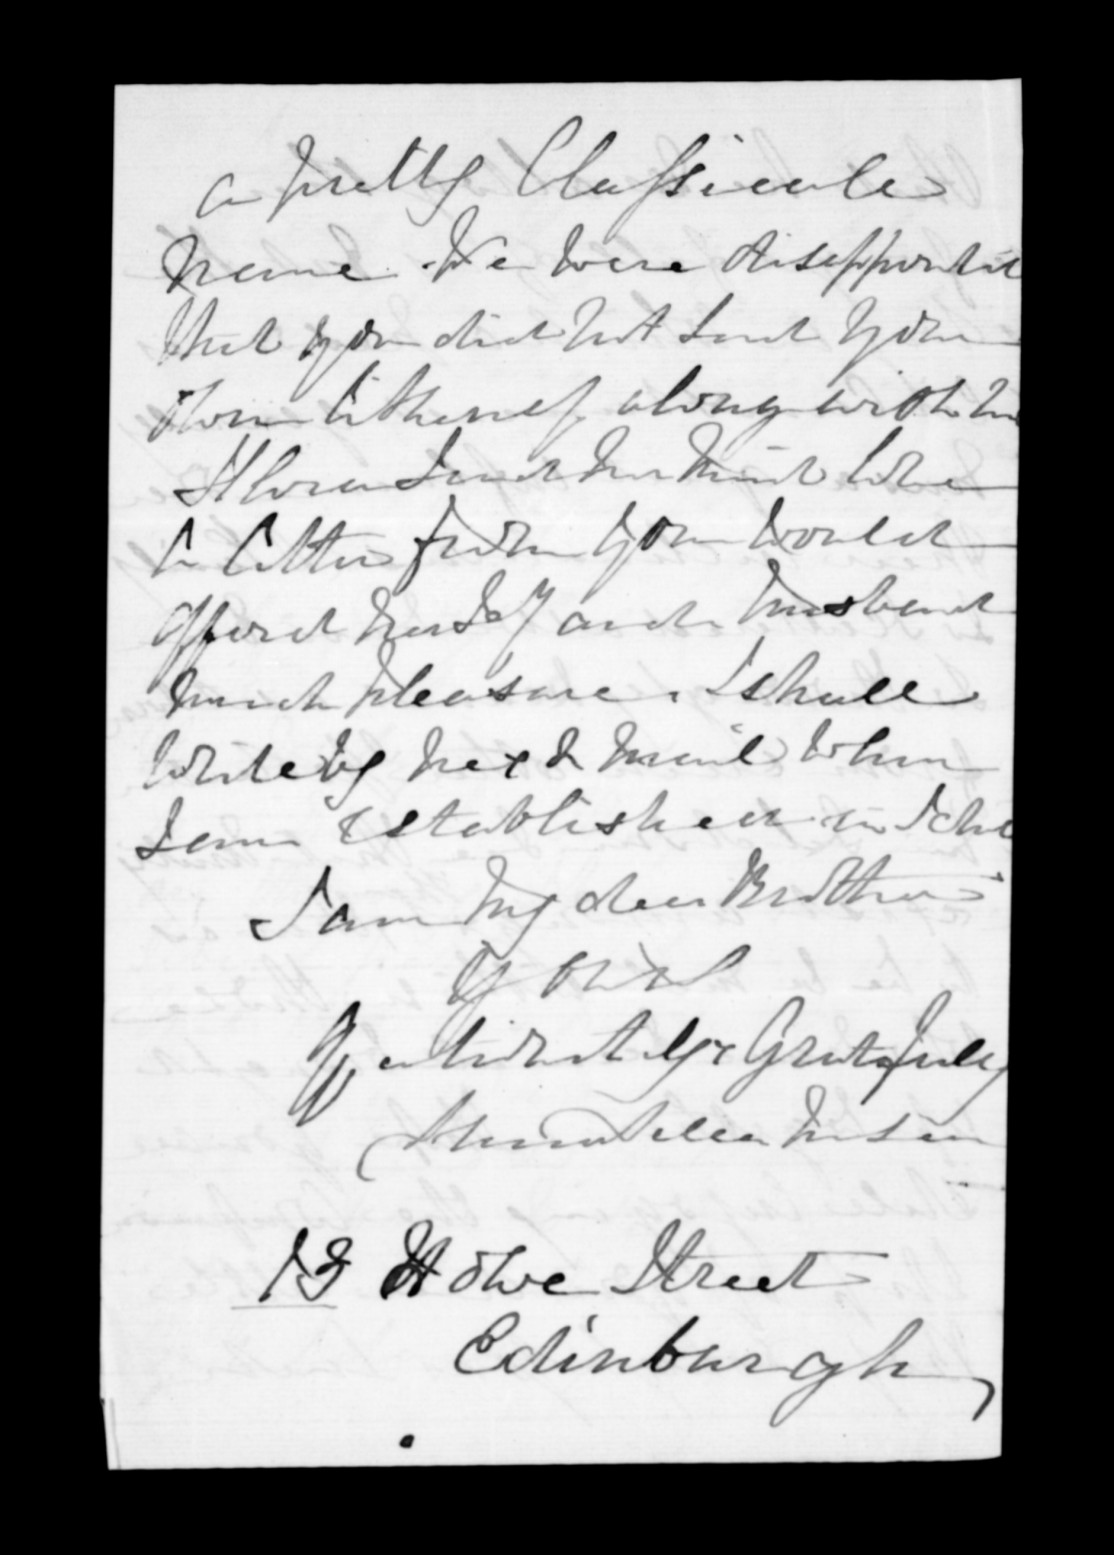 a pretty Classicale
name. We were disappointed
that you did not send your
own likeness along with
Flora sends her kind love
a letter from you would
afford herself and husband
much pleasure. I shall
write by next mail when
I am established in
I am my dear Brother
Yours
Affectionately & Gratefully

13 Howe Street
Edinburgh